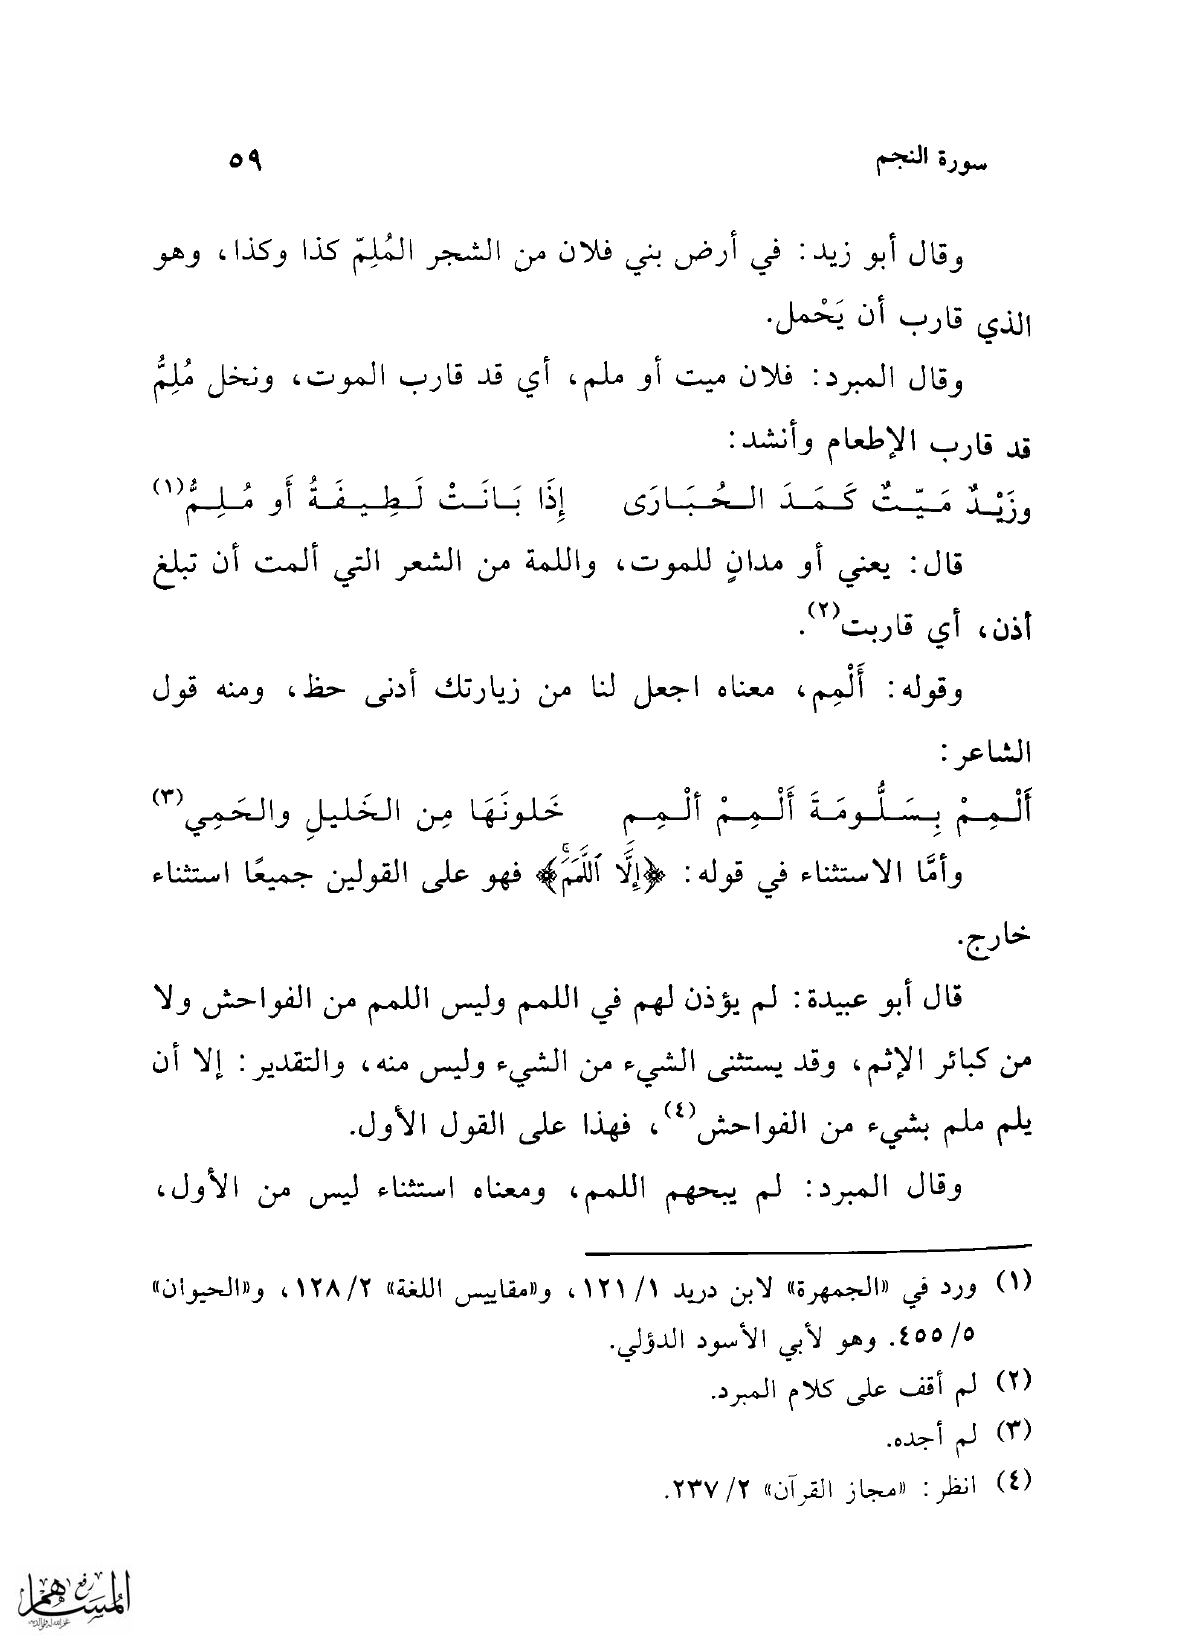 سورة النجم ٥٩
وقال أبو زيد: في أرض بني فلان من الشجر المُلِمّ كذا وكذا، وهو
الذي قارب أن يَحْمل.
وقال المبرد: فلان ميت أو ملم، أي قد قارب الموت، ونخل مُلِمُّ
قد قارب الإطعام وأنشد:
وزَيْدٌ مَيّتٌ كَمَدَ الحُبَارَى إِذَا بَانَتْ لَطِيفَةُ أَو مُلِمُّ(١)
قال: يعني أو مدانٍ للموت، واللمة من الشعر التي ألمت أن تبلغ
أذن، أي قاربت(٢).
وقوله: أَلْمِم، معناه اجعل لنا من زيارتك أدنى حظ، ومنه قول
الشاعر:
أَلْمِمْ بِسَلُّومَةَ أَلْمِمْ ألْمِمِ خَلونَهَا مِن الخَليلِ والحَمِي(٣)
وأمَّا الاستثناء في قوله: ﴿إِلَّا ٱللَّمَمَۚ﴾ فهو على القولين جميعًا استثناء
خارج.
قال أبو عبيدة: لم يؤذن لهم في اللمم وليس اللمم من الفواحش ولا
من كبائر الإثم، وقد يستثنى الشيء من الشيء وليس منه، والتقدير: إلا أن
يلم ملم بشيء من الفواحش(٤)، فهذا على القول الأول.
وقال المبرد: لم يبحهم اللمم، ومعناه استثناء ليس من الأول،
(١) ورد في «الجمهرة» لابن دريد ١/ ١٢١، و«مقاييس اللغة» ٢/ ١٢٨، و«الحيوان»
٥/ ٤٥٥. وهو لأبي الأسود الدؤلي.
(٢) لم أقف على كلام المبرد.
(٣) لم أجده.
(٤) انظر: «مجاز القرآن» ٢/ ٢٣٧.